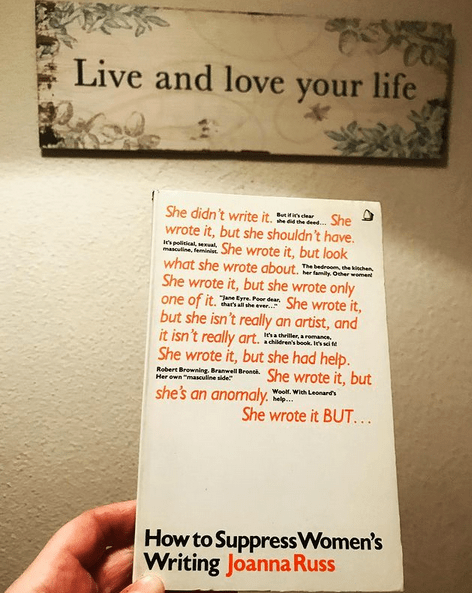 Live and love your life
She didn't write it. But if it's clear she did the deed... She
wrote it, but she shouldn't have.
It's political, sexual, masculine, feminist. She wrote it, but look
what she wrote about. The bedroom, the kitchen, her family. Other women!
She wrote it, but she wrote only
one of it. "Jane Eyre. Poor dear, that's all she ever..." She wrote it,
but she isn't really an artist, and
it isn't really art. It's a thriller, a romance, a children's book. It's sci fi!
She wrote it, but she had help.
Robert Browning. Branwell Brontë. Her own "masculine side." She wrote it, but
she's an anomaly. Woolf. With Leonard's help...
She wrote it BUT...
How to Suppress Women's
Writing Joanna Russ